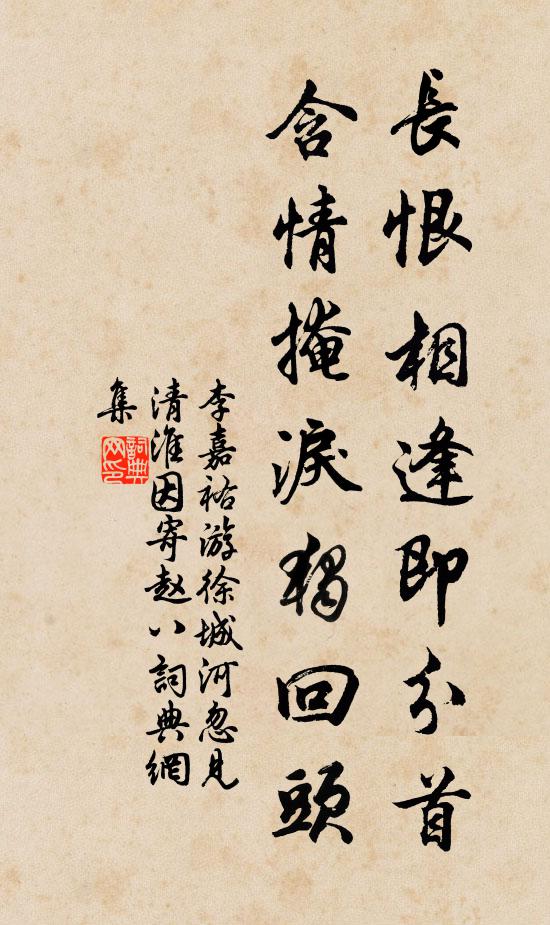 長恨相逢即分首
含情掩淚獨回頭
李嘉祐游徐城河忽見
清淮因寄赵八詞典網
集
詞典
网印